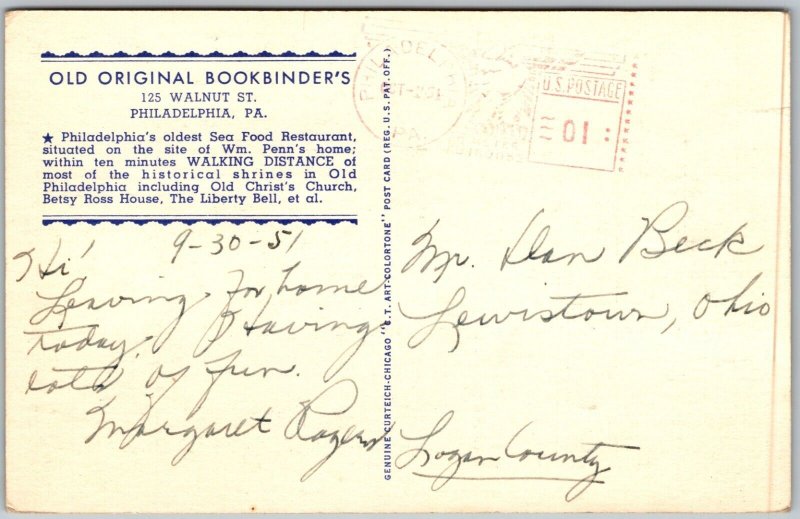 OLD ORIGINAL BOOKBINDER'S
125 WALNUT ST.
PHILADELPHIA, PA.
★ Philadelphia's oldest Sea Food Restaurant,
situated on the site of Wm. Penn's home;
within ten minutes WALKING DISTANCE of
most of the historical shrines in Old
Philadelphia including Old Christ's Church,
Betsy Ross House, The Liberty Bell, et al.
9-30-51
Hi!
Leaving for home
today. Having
lots of fun.
Margaret
GENUINE CURTEICH-CHICAGO "C.T. ART-COLORTONE" POST CARD (REG. U.S. PAT. OFF.)
PHILADELPHIA
PA.
U.S. POSTAGE
01
Mr. Dan Beck
Lewistown, Ohio
Logan County